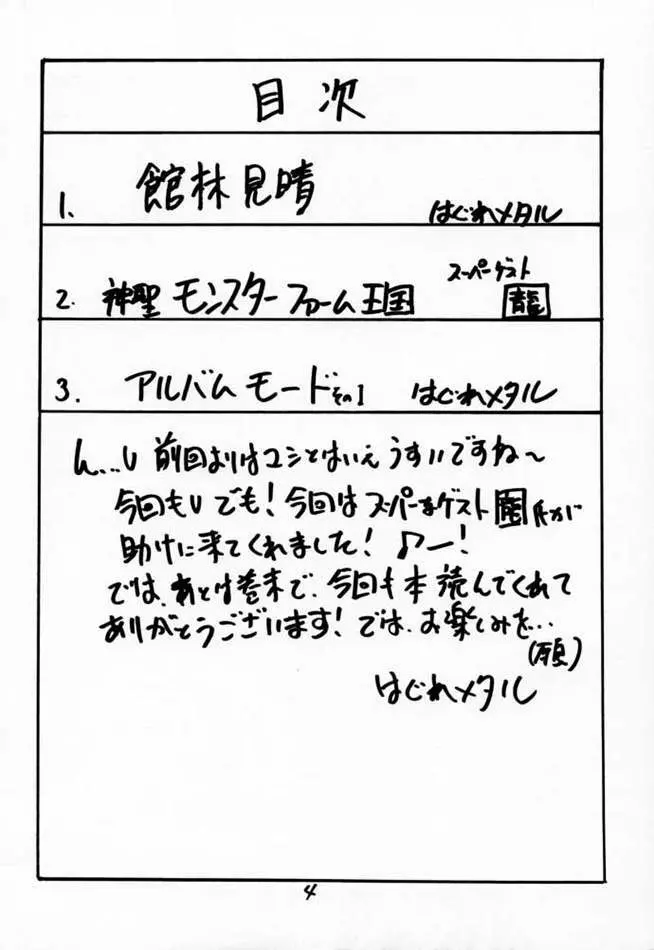 目次
1. 館林見晴 はぐれメタル
スーパーゲスト
2. 神聖モンスターファーム王国 龍
3. アルバムモードその1 はぐれメタル
ん…U 前回よりはマシとはいえうすいですね～
今回もU でも!今回はスーパーなゲスト 氏が
助けに来てくれました! ♪ー!
では、あとは巻末で、今回も本読んでくれて
ありがとうございます! では、お楽しみを…
(願)
はぐれメタル
4